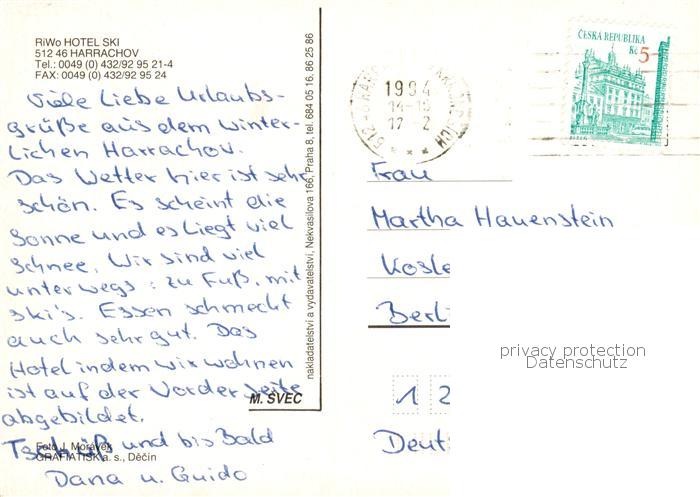 RiWo HOTEL SKI
512 46 HARRACHOV
Tel.: 0049 (0) 432/92 95 21-4
FAX: 0049 (0) 432/92 95 24
Viele Liebe Urlaubs-
grüße aus dem winter-
lichen Harrachov.
Das Wetter hier ist sehr
schön. Es scheint die
Sonne und es liegt viel
Schnee. Wir sind viel
unterwegs: zu Fuß, mit
Ski's. Essen schmeckt
auch sehr gut. Das
Hotel indem wir wohnen
ist auf der Vorderseite
abgebildet.
Tschüß und bis Bald
Dana u. Guido
Foto J. Morávek
GRAFIATISK a. s., Děčín
M. ŠVEC
nakladatelství a vydavatelství, Nekvasilova 166, Praha 8, tel. 684 05 16, 86 25 86
1994
14-15
17 2
512
ČESKÁ REPUBLIKA
Kč 5
Frau
Martha Hauenstein
Kosle
Berli
12
Deut
privacy protection
Datenschutz